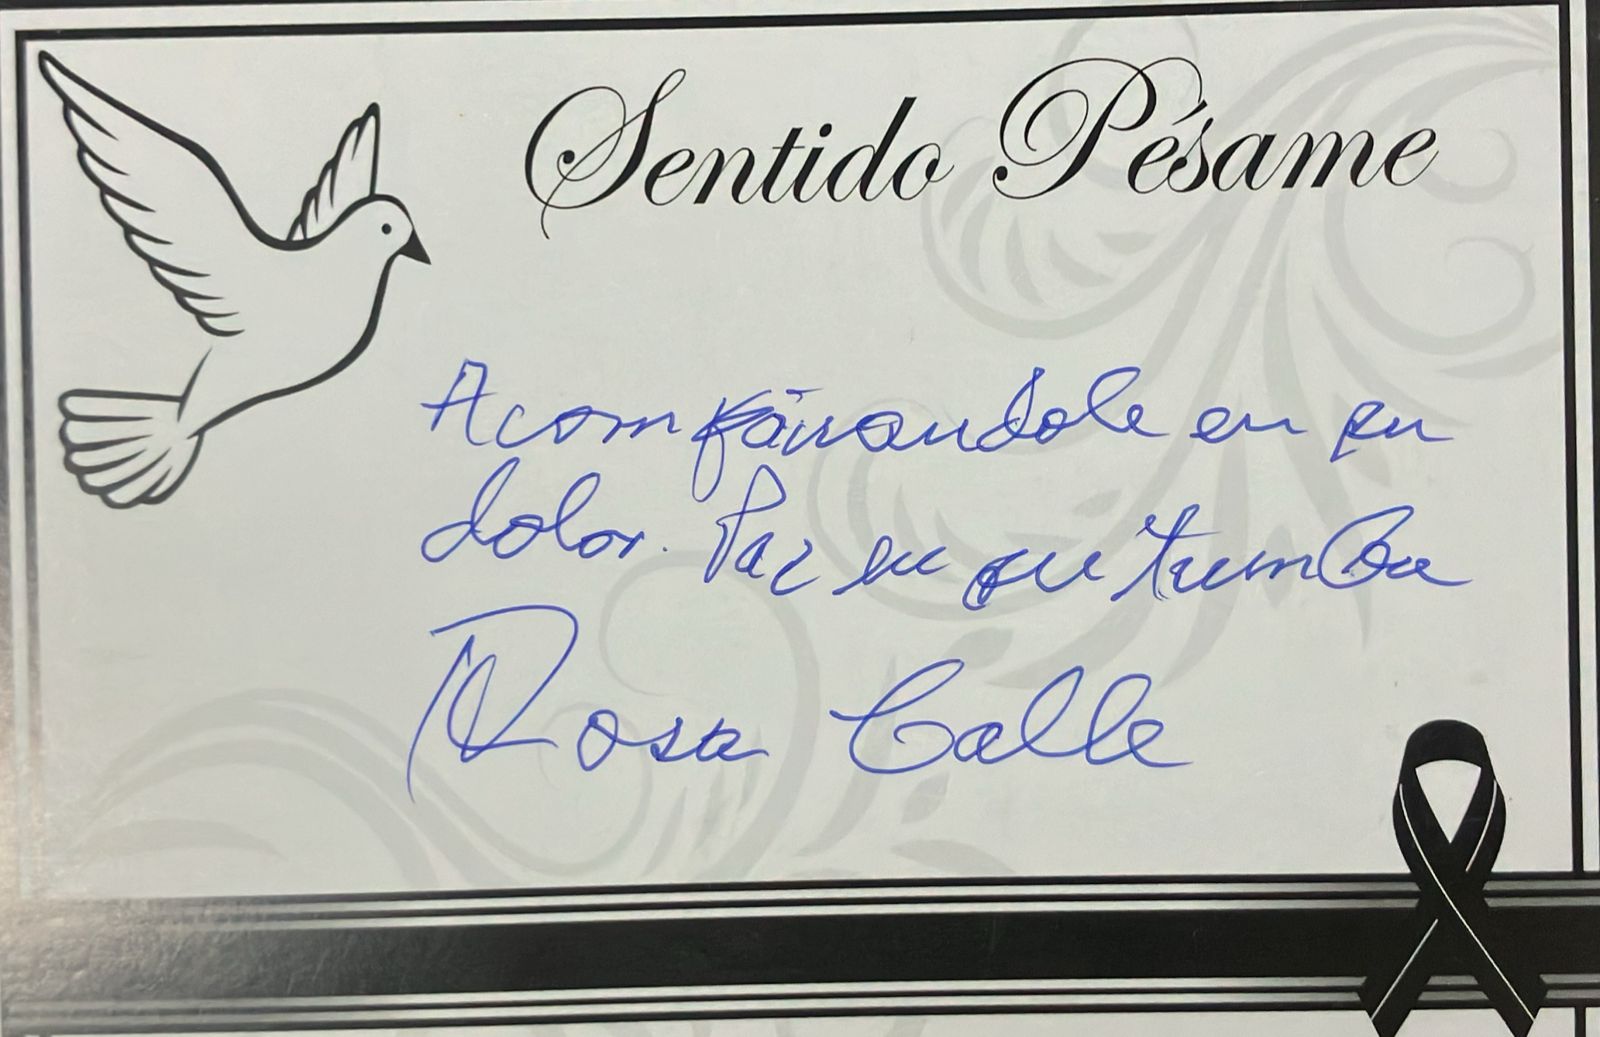 Sentido Pésame
Acompáñandole en su
dolor. Paz en su tumba
Rosa Calle